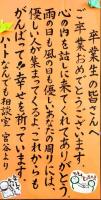 卒業生の皆さんへ
ご卒業おめでとうございます。
心の内を話しに来てくれてありがとう
雨の日も風の日も優しいあなたの周りには、
優しい人が集まってくるよ。これからも
がんばってネ 幸せを祈っています
ハートなんでも相談室 宮谷より